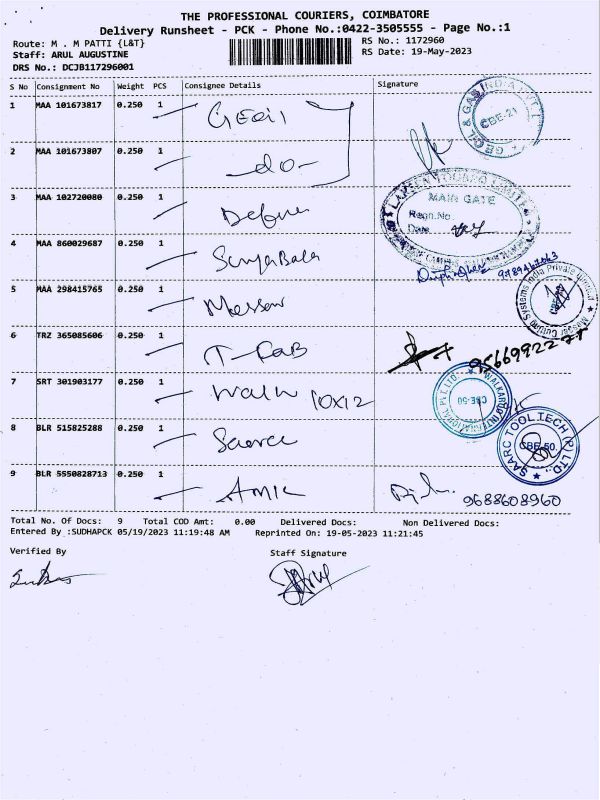 THE PROFESSIONAL COURIERS, COIMBATORE
Delivery Runsheet - PCK - Phone No.:0422-3505555 - Page No.:1
Route: M . M PATTI {L&T} RS No.: 1172960
Staff: ARUL AUGUSTINE RS Date: 19-May-2023
DRS No.: DCJB117296001
S No Consignment No Weight PCS Consignee Details Signature
1 MAA 101673817 0.250 1
CBE-21
2 MAA 101673807 0.250 1 -do-
LARSEN TOUBRO LIMITED
MAIN GATE
Regn.No
Date
3 MAA 102720080 0.250 1
4 MAA 860029687 0.250 1 SuryaBala
5 MAA 298415765 0.250 1 Messer
Messer Cutting Systems India Private Limited
6 TRZ 365085606 0.250 1 T-FAB
7 SRT 301903177 0.250 1 10x12
WALKAROO INTERNATIONAL P LTD.
CBE-50
8 BLR 515825288 0.250 1
SAARC TOOLTECH (P) LTD.
CBE-50
9 BLR 5550828713 0.250 1
9688608960
Total No. Of Docs: 9 Total COD Amt: 0.00 Delivered Docs: Non Delivered Docs:
Entered By :SUDHAPCK 05/19/2023 11:19:48 AM Reprinted On: 19-05-2023 11:21:45
Verified By Staff Signature